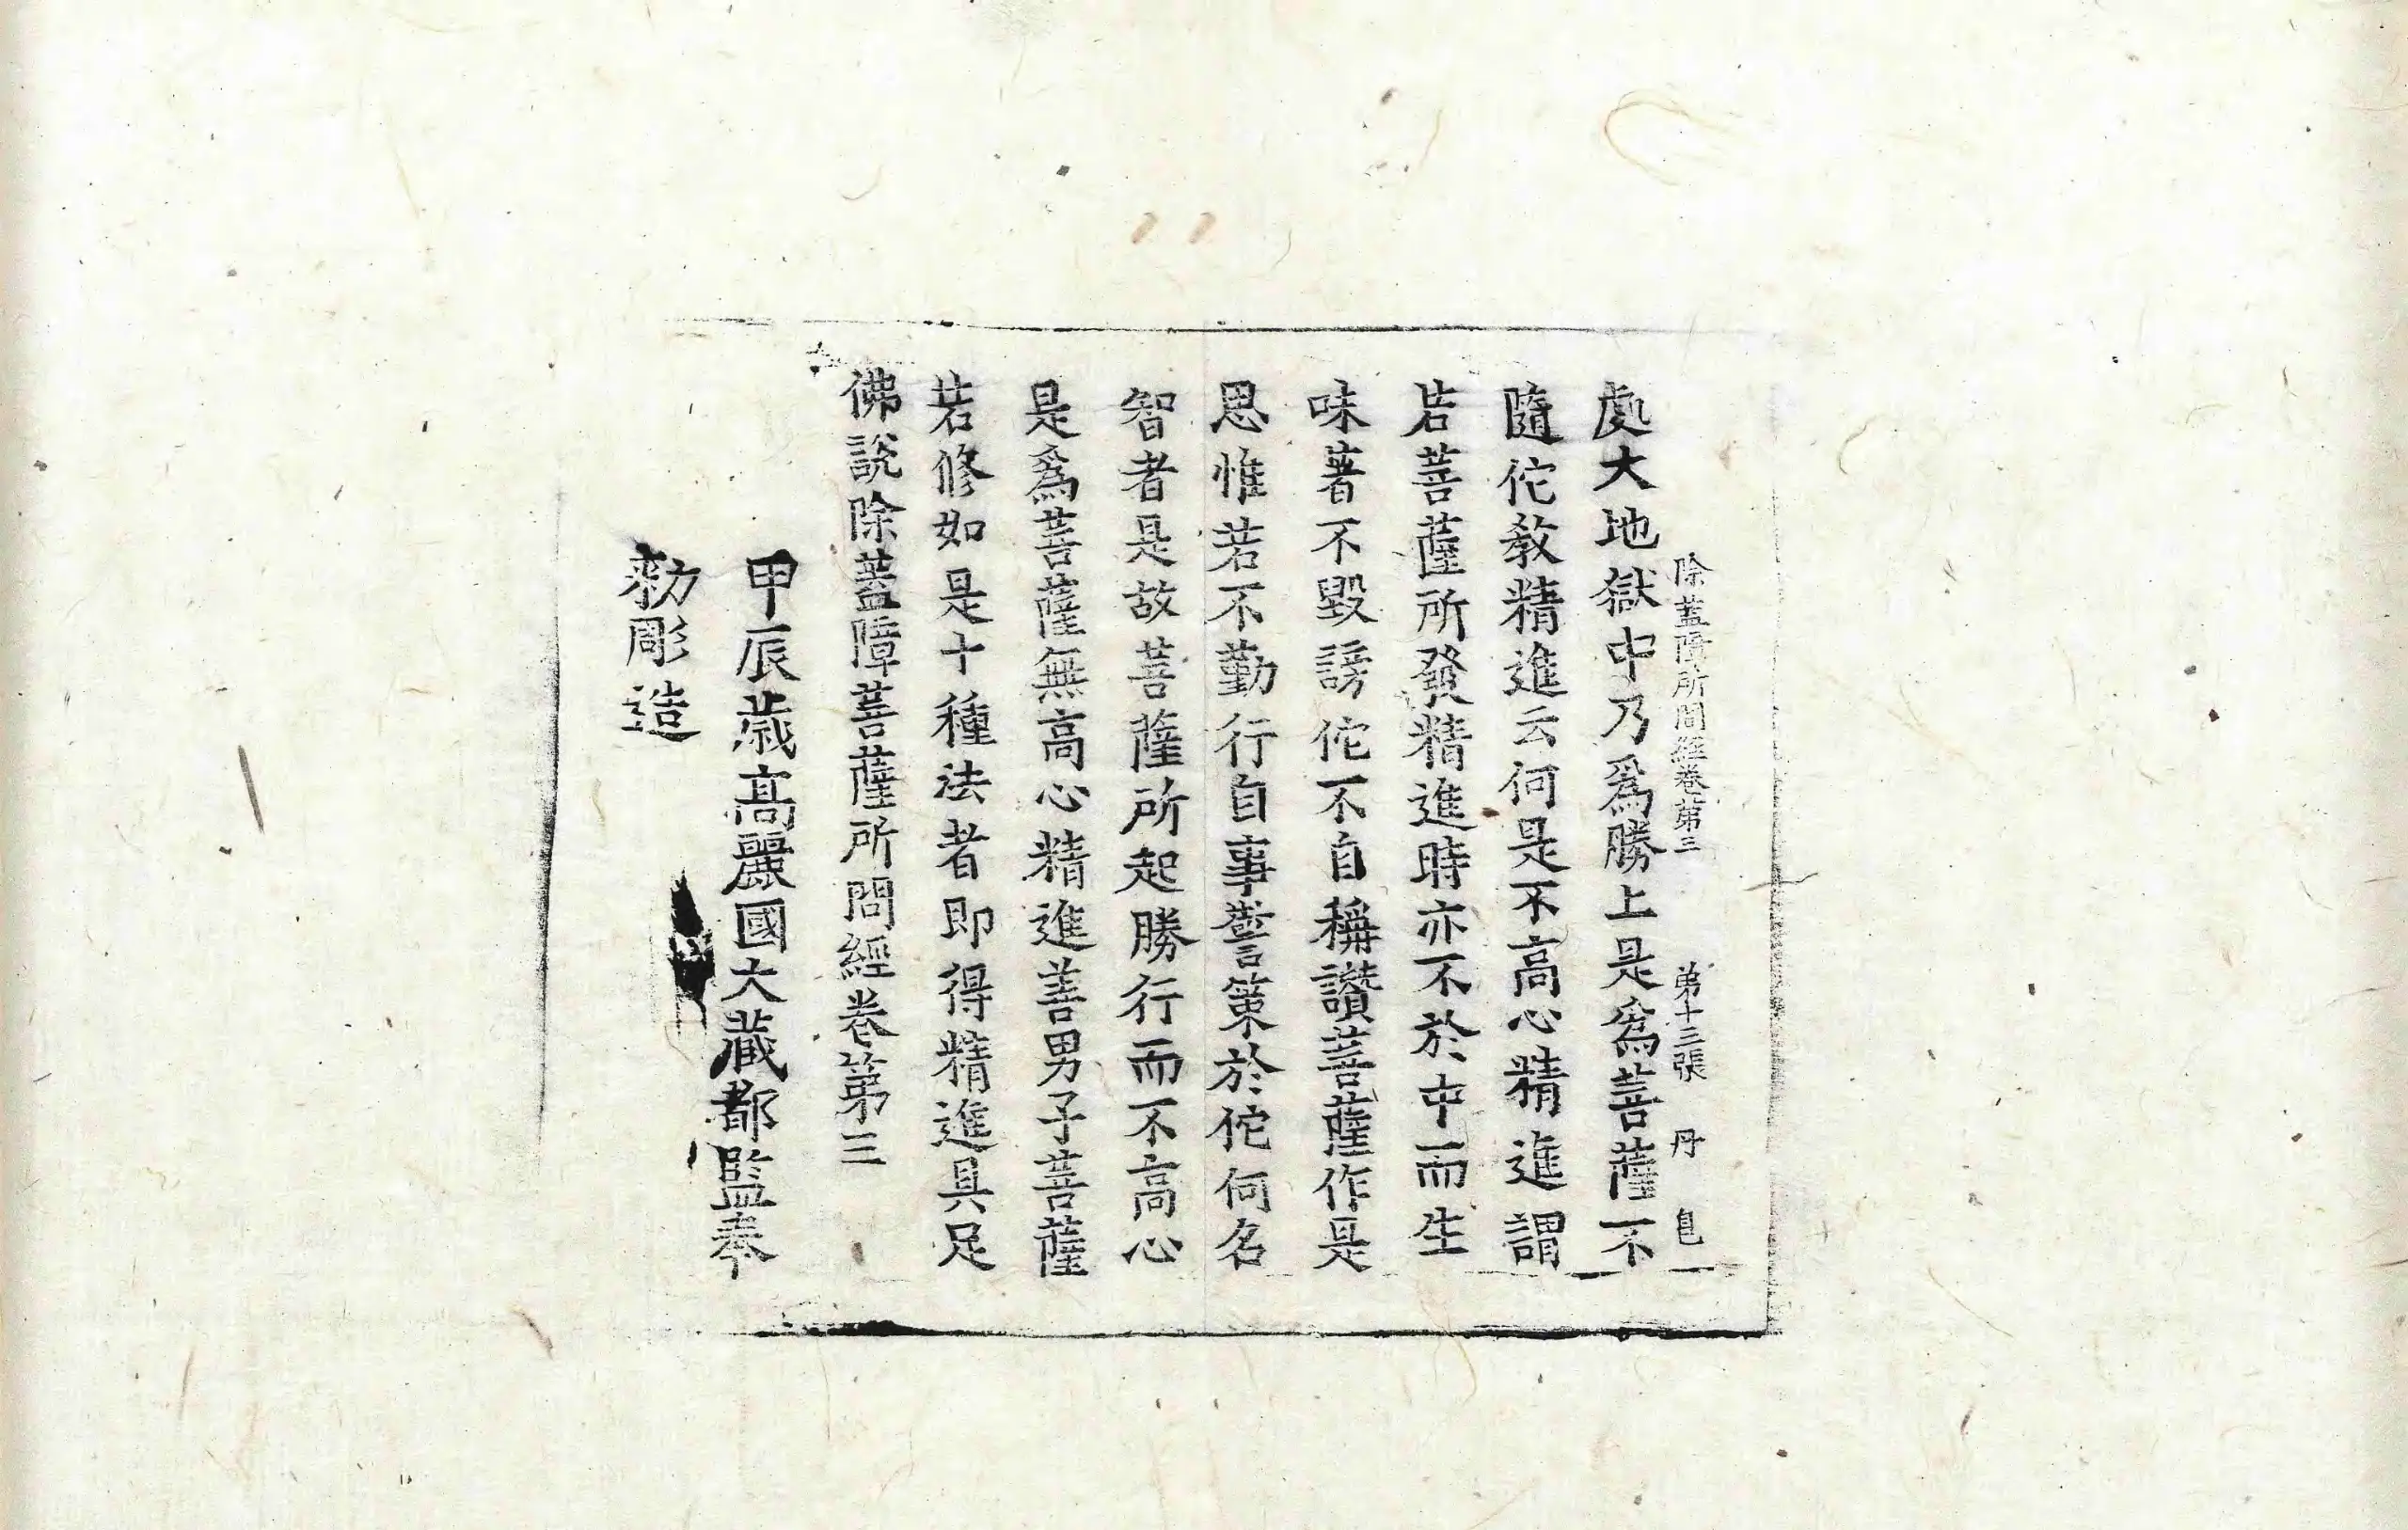 除蓋障所問經卷第三 第十三張 丹
處大地獄中乃爲勝上是爲菩薩不
隨佗教精進云何是不高心精進謂
若菩薩所發精進時亦不於中而生
味著不毀謗佗不自稱讚菩薩作是
思惟若不勤行自事誉策於佗何名
智者是故菩薩所起勝行而不高心
是爲菩薩無高心精進善男子菩薩
若修如是十種法者即得精進具足
佛說除蓋障菩薩所問經卷第三
甲辰歲高麗國大藏都監奉
勑彫造